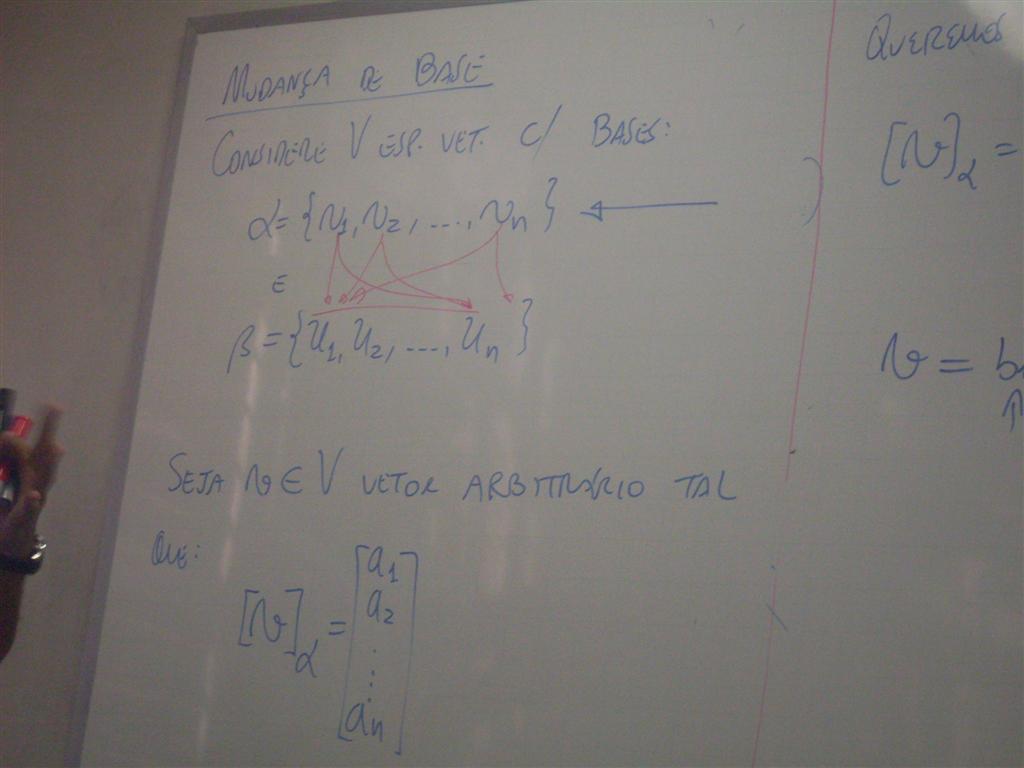 MUDANÇA DE BASE
CONSIDERE V ESP. VET. C/ BASES:
α = {v₁, v₂, ..., vₙ}
E
β = {u₁, u₂, ..., uₙ}
SEJA v ∈ V VETOR ARBITRÁRIO TAL
QUE:
[v]α = [a₁
a₂
⋮
aₙ]
QUEREMOS
[v]α =
v = b